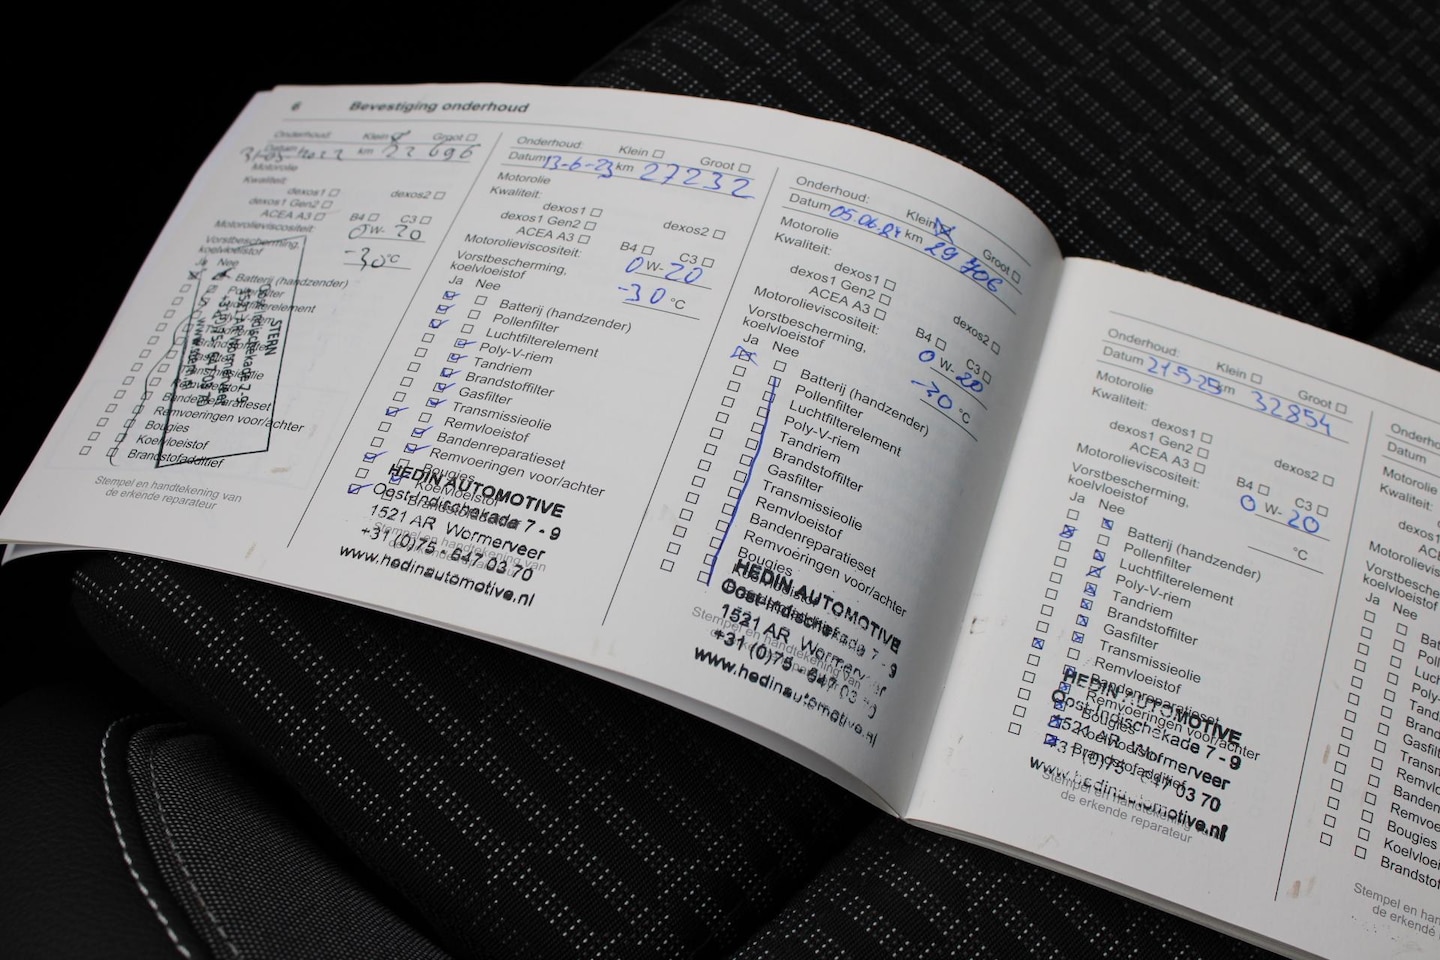 6 Bevestiging onderhoud
Onderhoud: Klein Groot
Datum 31-05-2022 km 22 696
Motorolie
Kwaliteit:
dexos1 dexos2
dexos1 Gen2
ACEA A3 B4 C3
Motorolieviscositeit: 0W-20
Vorstbescherming,
koelvloeistof -30 °C
Ja Nee
Batterij (handzender)
Pollenfilter
Luchtfilterelement
Transmissieolie
Bandenreparatieset
Remvoeringen voor/achter
Bougies
Koelvloeistof
Brandstofadditief
STERN
Stempel en handtekening van
de erkende reparateur
Onderhoud: Klein Groot
Datum 13-6-23 km 27232
Motorolie
Kwaliteit:
dexos1 dexos2
dexos1 Gen2
ACEA A3 B4 C3
Motorolieviscositeit: 0 W- 20
Vorstbescherming,
koelvloeistof -30 °C
Ja Nee
Batterij (handzender)
Pollenfilter
Luchtfilterelement
Poly-V-riem
Tandriem
Brandstoffilter
Gasfilter
Transmissieolie
Remvloeistof
Bandenreparatieset
Remvoeringen voor/achter
Bougies
Koelvloeistof
HEDIN AUTOMOTIVE
Oost-Indischekade 7 - 9
1521 AR Wormerveer
+31 (0)75 - 647 03 70
www.hedinautomotive.nl
Onderhoud: Klein Groot
Datum 05.06.24 km 29 706
Motorolie
Kwaliteit:
dexos1 dexos2
dexos1 Gen2
ACEA A3 B4 C3
Motorolieviscositeit: 0 W- 20
Vorstbescherming,
koelvloeistof -30 °C
Ja Nee
Batterij (handzender)
Pollenfilter
Luchtfilterelement
Poly-V-riem
Tandriem
Brandstoffilter
Gasfilter
Transmissieolie
Remvloeistof
Bandenreparatieset
Remvoeringen voor/achter
Bougies
HEDIN AUTOMOTIVE
Oost-Indischekade 7 - 9
1521 AR Wormerveer
+31 (0)75 - 647 03 70
www.hedinautomotive.nl
Onderhoud: Klein Groot
Datum 21-5-25 km 32854
Motorolie
Kwaliteit:
dexos1 dexos2
dexos1 Gen2
ACEA A3 B4 C3
Motorolieviscositeit: 0 W- 20
Vorstbescherming,
koelvloeistof °C
Ja Nee
Batterij (handzender)
Pollenfilter
Luchtfilterelement
Poly-V-riem
Tandriem
Brandstoffilter
Gasfilter
Transmissieolie
Remvloeistof
Bandenreparatieset
Remvoeringen voor/achter
Bougies
Koelvloeistof
Brandstofadditief
HEDIN AUTOMOTIVE
Oost-Indischekade 7 - 9
1521 AR Wormerveer
+31 (0)75 - 647 03 70
www.hedinautomotive.nl
Stempel en handtekening van
de erkende reparateur
Onderho
Datum
Motorolie
Kwaliteit:
dexos1
ACE
Motorolievis
Vorstbesche
koelvloeistof
Ja Nee
Bat
Poll
Luch
Poly-
Tand
Brand
Gasfilt
Transm
Remvl
Banden
Remvoe
Bougies
Koelvloei
Brandsto
Stempel en han
de erkende r